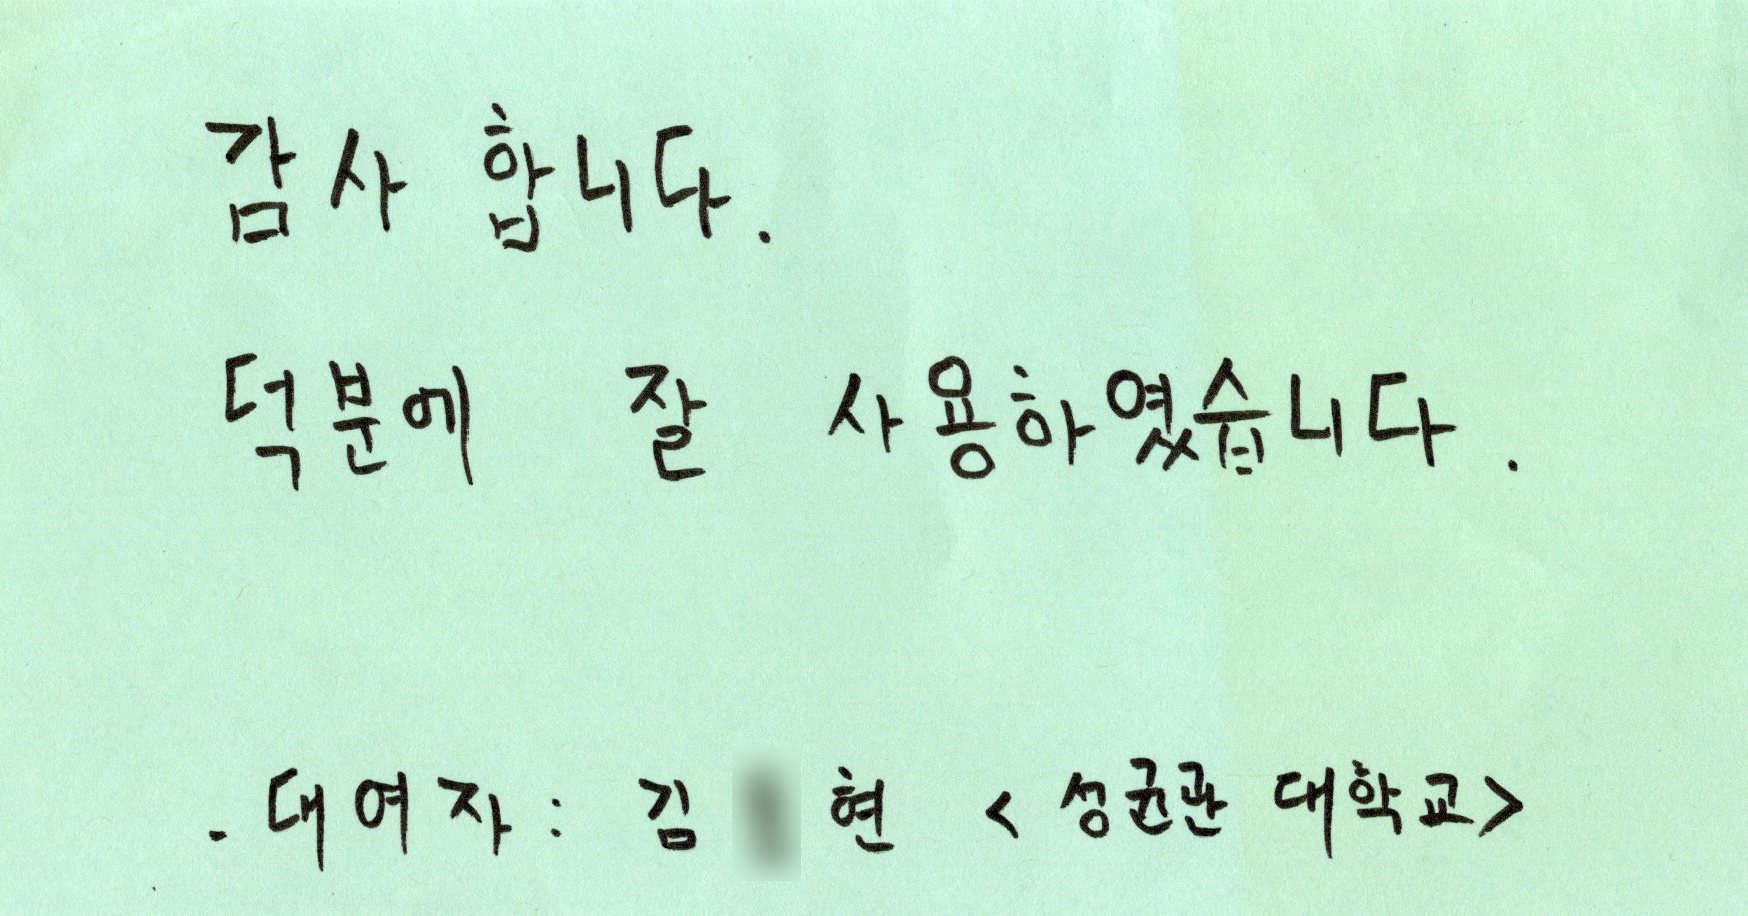 감사 합니다.
덕분에 잘 사용하였습니다.
. 대여자 : 김 현 < 성균관 대학교>